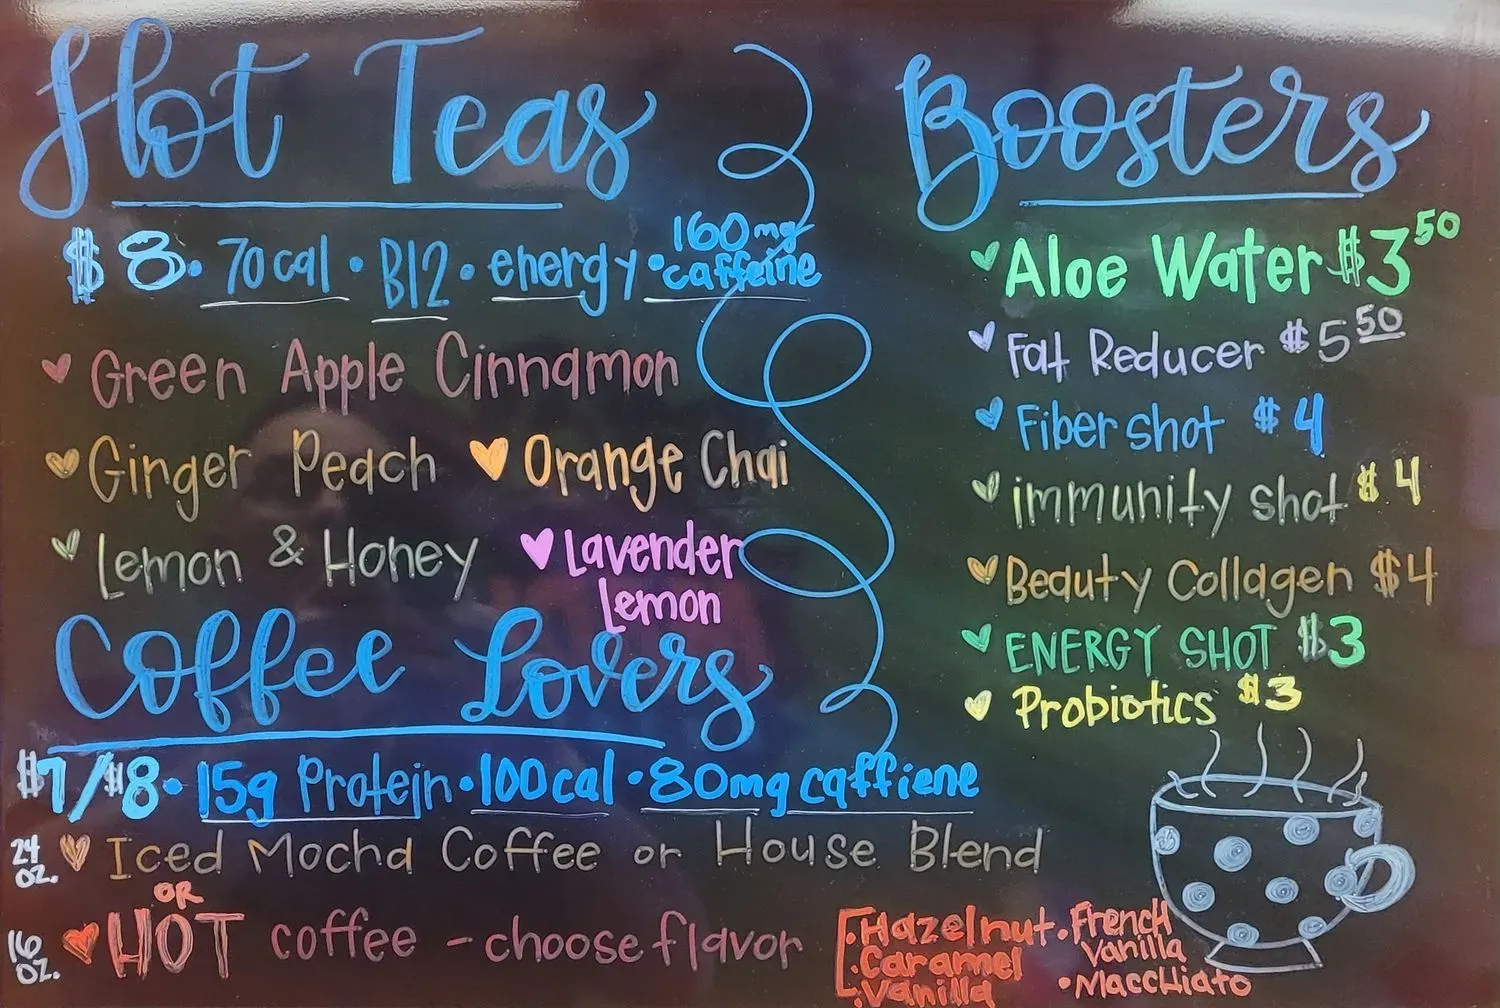 Hot Teas
$8 • 70cal • B12 • energy • 160mg caffeine
Green Apple Cinnamon
Ginger Peach Orange Chai
Lemon & Honey Lavender
Lemon
Coffee Lovers
$7/$8 • 15g Protein • 100cal • 80mg caffiene
24 oz. Iced Mocha Coffee or House Blend
OR
16 oz. HOT coffee - choose flavor
• Hazelnut
• Caramel
• Vanilla
• French Vanilla
• Macchiato
Boosters
Aloe Water $3.50
Fat Reducer $5.50
Fiber shot $4
immunity shot $4
Beauty Collagen $4
ENERGY SHOT $3
Probiotics $3